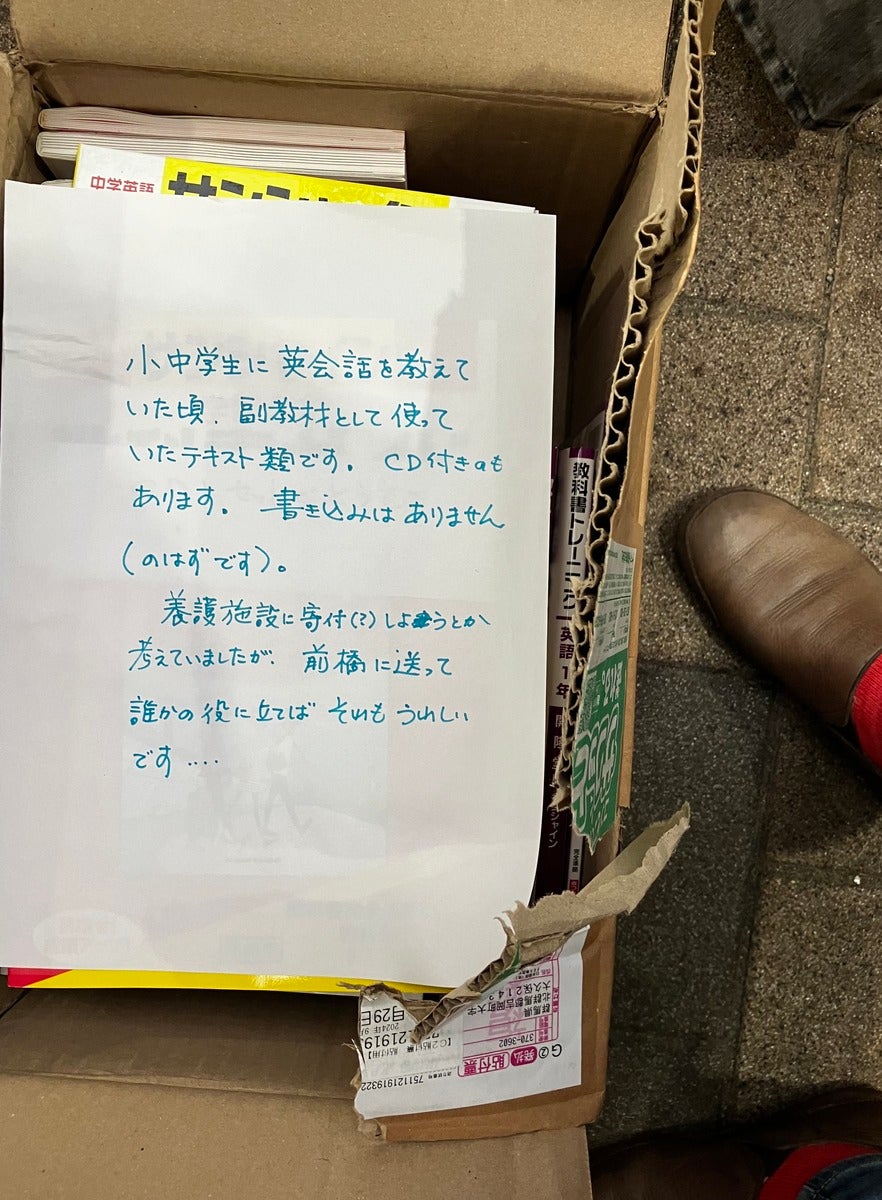 中学英語
小中学生に英会話を教えて
いた頃、副教材として使って
いたテキスト類です。CD付きのも
あります。書き込みはありません
(のはずです)。
養護施設に寄付(?)しようとか
考えていましたが、前橋に送って
誰かの役に立てばそれもうれしい
です....
教科書トレーニング
英語1年
開隆堂
シャイン
完全準拠
G②
発払
貼付票
370-3602
群馬県
北群馬郡吉岡町大字
大久保2143
【C2貼付票 貼付用】
2024年 9月
月29日
751121919322